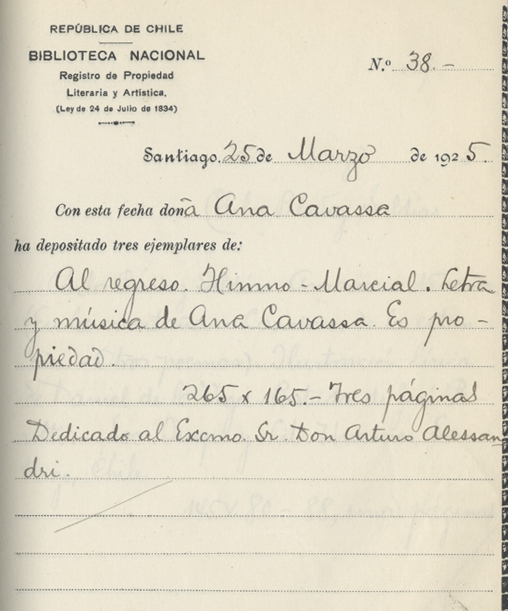 REPÚBLICA DE CHILE
BIBLIOTECA NACIONAL
Registro de Propiedad
Literaria y Artística.
(Ley de 24 de Julio de 1834)
N.º 38.-
Santiago, 25 de Marzo de 1925.
Con esta fecha doña Ana Cavassa
ha depositado tres ejemplares de:
Al regreso. Himno - Marcial. Letra
y música de Ana Cavassa. Es pro-
piedad.
265 x 165.- Tres páginas
Dedicado al Excmo. Sr. Don Arturo Alessan
dri.